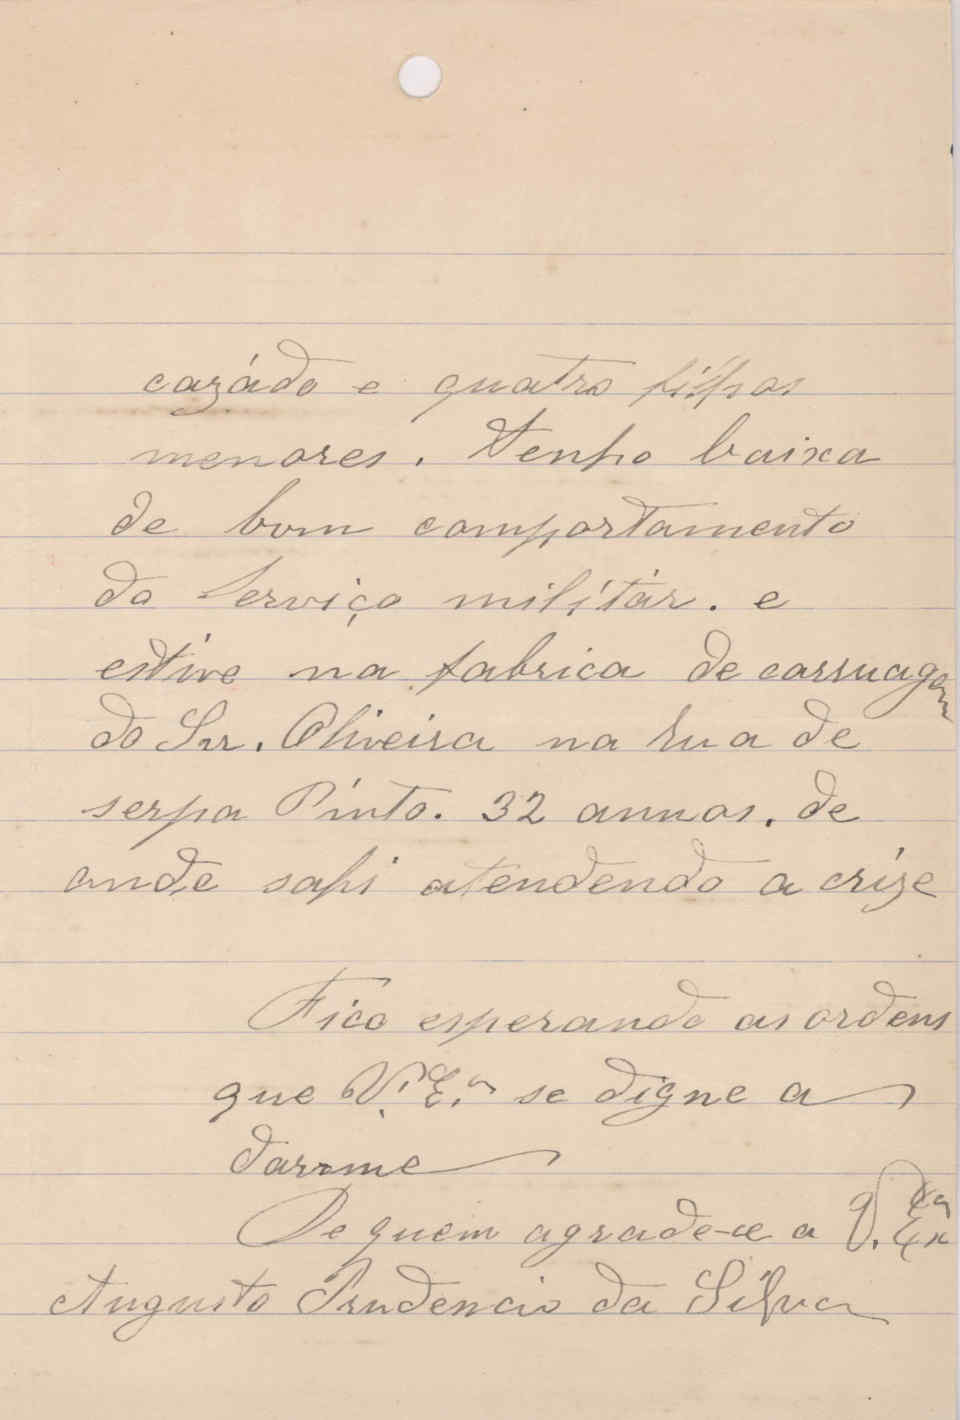 cazádo e quatro filhos
menores. Tenho baixa
de bom comportamento
do Serviço militár. e
estive na fabrica de carruagem
do Snr. Oliveira na Rua de
serpa Pinto. 32 annos. de
onde sahi atendendo a crize
Fico esperando as ordens
que V. E.ª se digne a
darme
De quem agradece a V. Exª
Augusto Prudencio da Silva